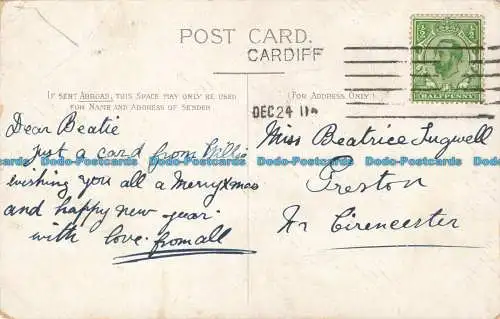 POST CARD.
CARDIFF
DEC 24 11
HALFPENNY
IF SENT ABROAD, THIS SPACE MAY ONLY BE USED
FOR NAME AND ADDRESS OF SENDER
(FOR ADDRESS ONLY)
Dear Beatie
Just a card from
wishing you all a Merry Xmas
and happy new year.
with love from all
Miss Beatrice Tugwell
Preston
Nr Cirencester
Dodo-Postcards Dodo-Postcards Dodo-Postcards Dodo-Postcards Dodo-Postcards